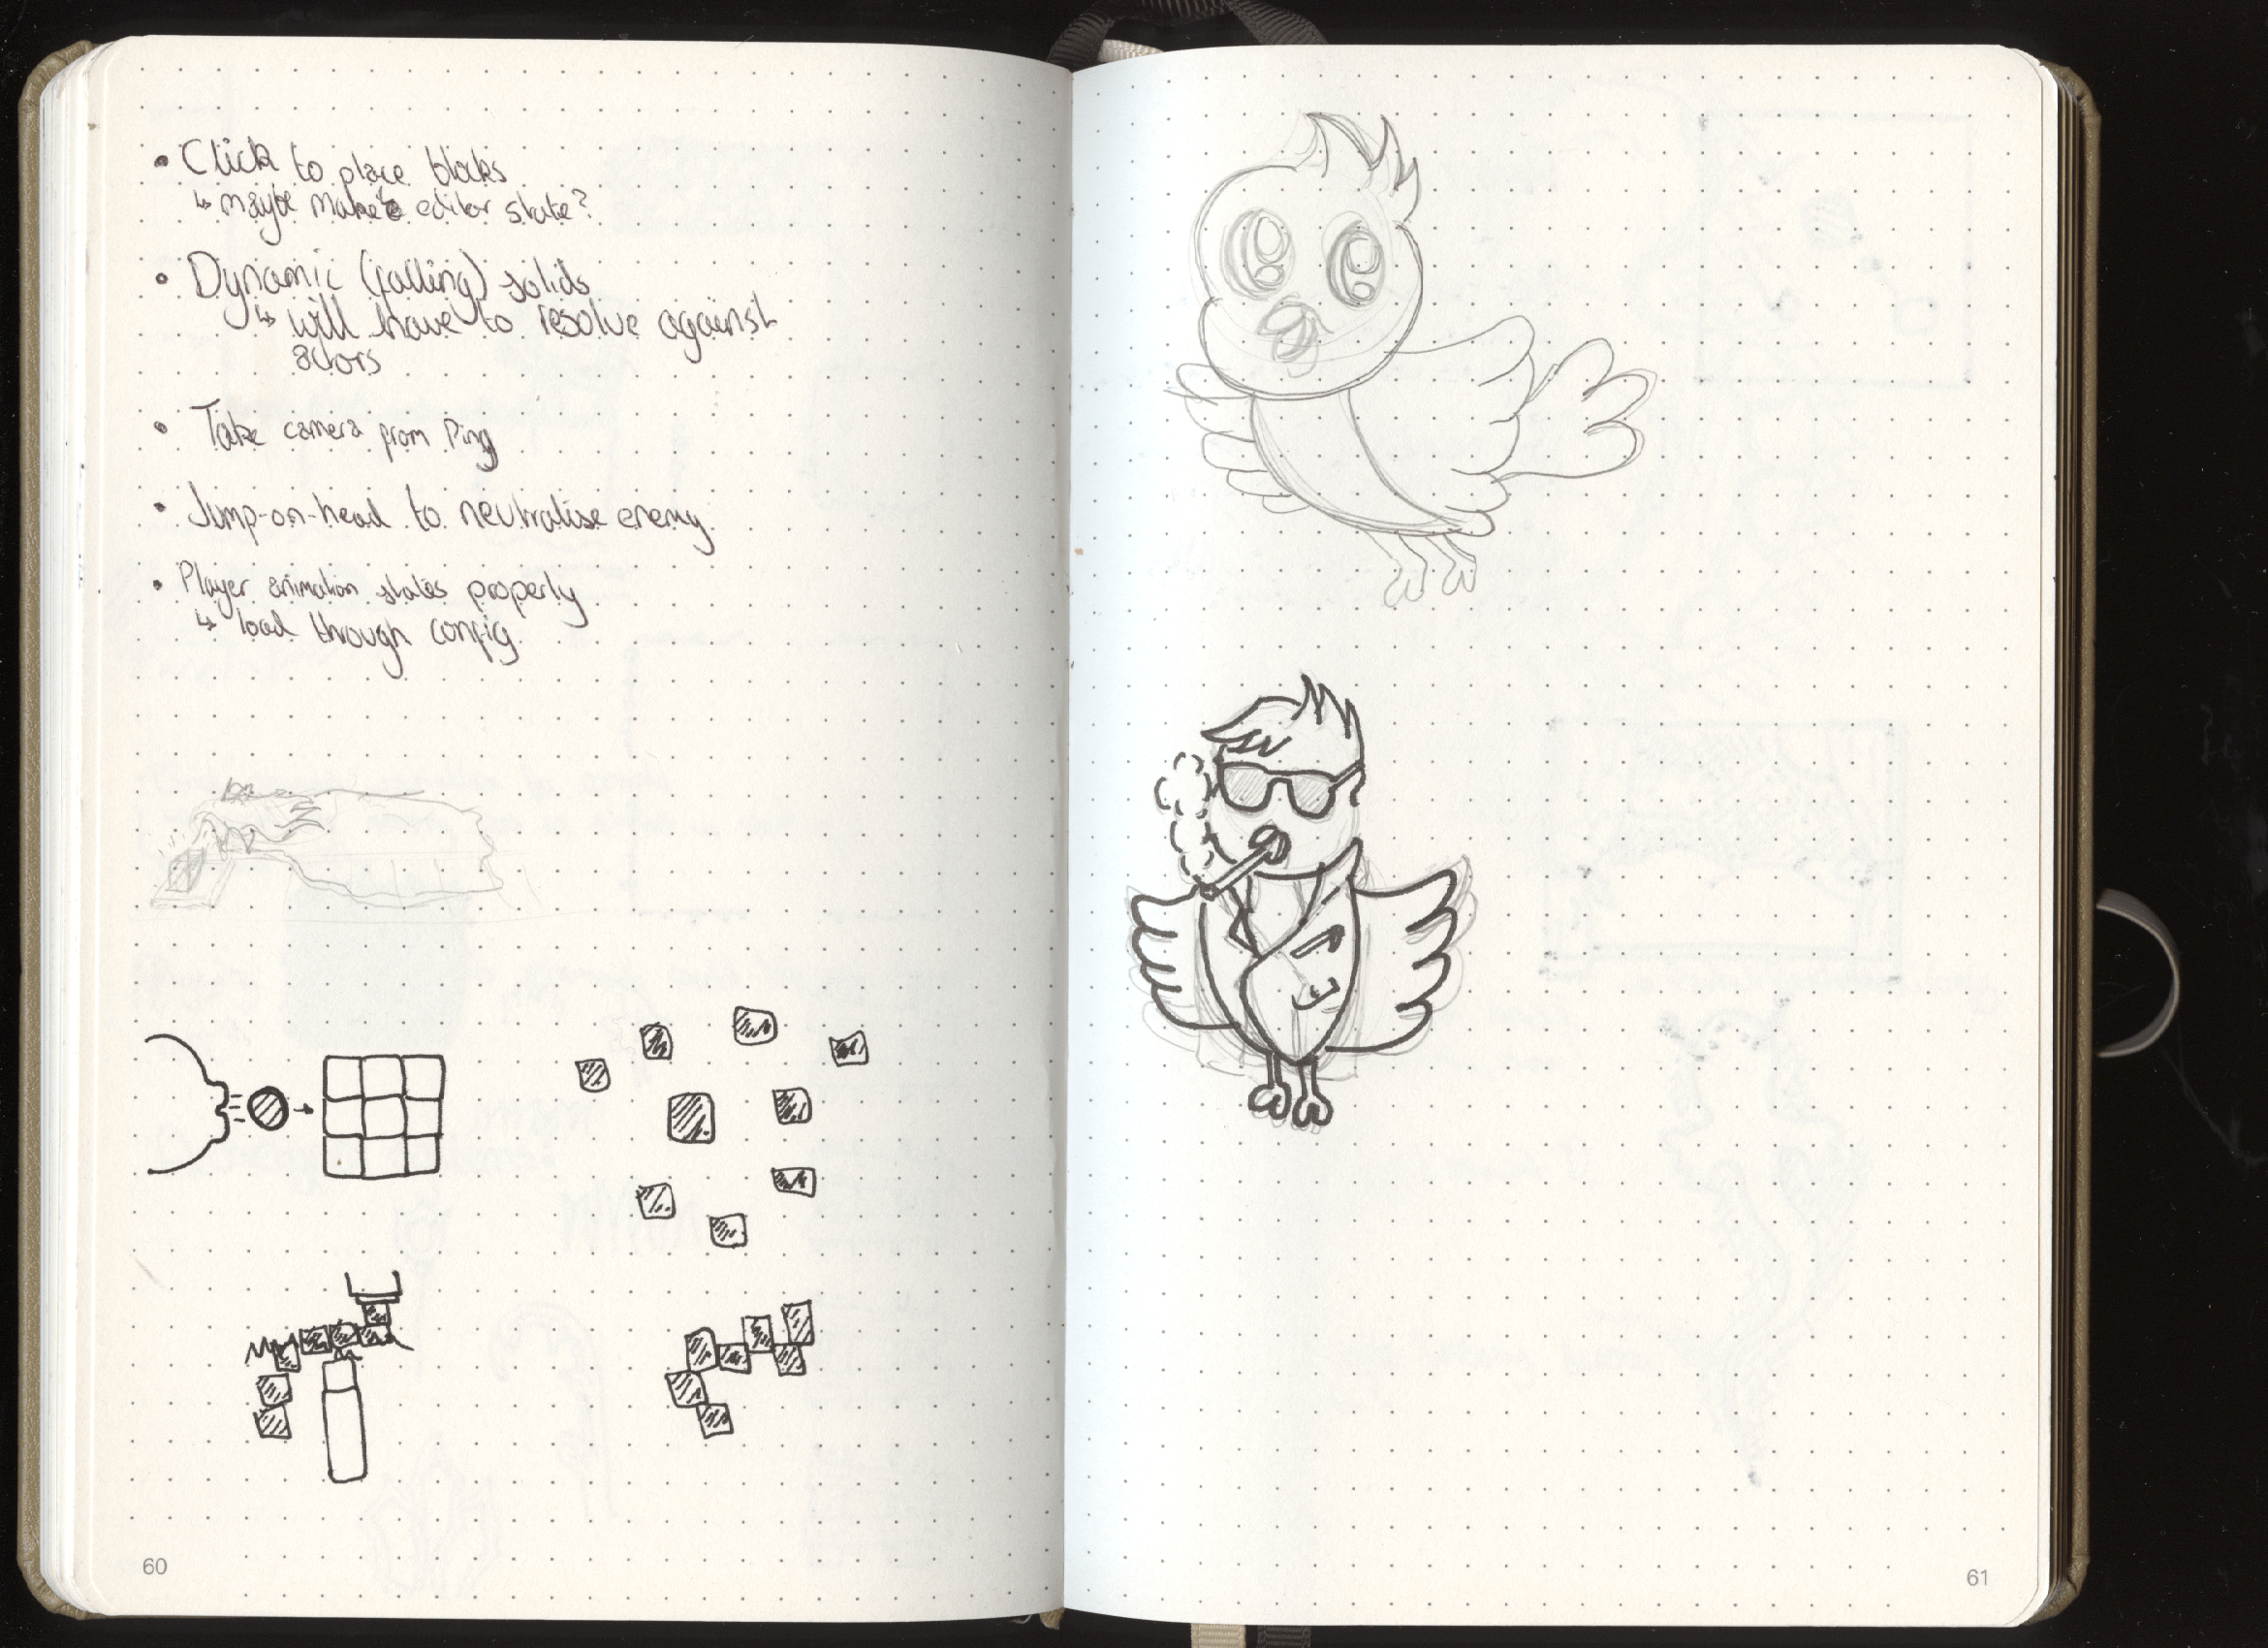 • Click to place blocks
↳ maybe make editor state?
• Dynamic (falling) solids
↳ will have to resolve against
actors
• Take camera from Ping
• Jump-on-head to neutralise enemy
• Player animation states properly
↳ load through config
60
61